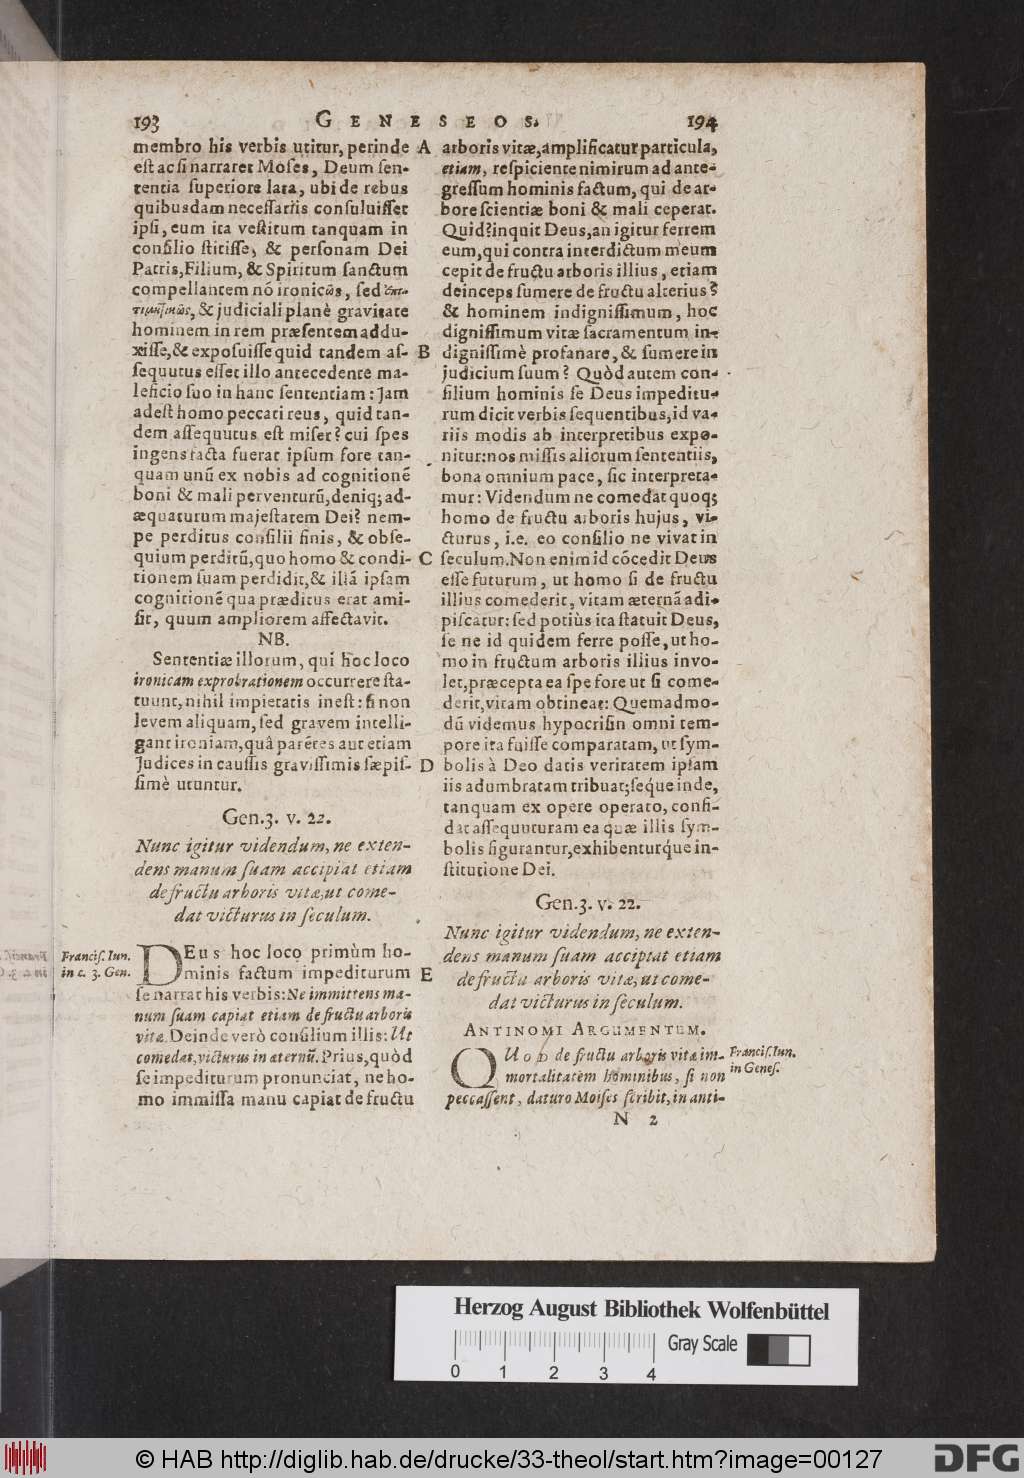 193
GENESEOS.
194
membro his verbis utitur, perinde
est ac si narraret Moses, Deum sen-
tentia superiore lata, ubi de rebus
quibusdam necessariis consuluisset
ipsi, eum ita vestitum tanquam in
consilio stitisse, & personam Dei
Patris, Filium, & Spiritum sanctum
compellantem nō ironicῶs, sed
& judiciali planè gravitate
hominem in rem præsentem addu-
xisse, & exposuisse quid tandem as-
sequutus esset illo antecedente ma-
leficio suo in hanc sententiam: Jam
adest homo peccati reus, quid tan-
dem assequutus est miser? cui spes
ingens facta fuerat ipsum fore tan-
quam unũ ex nobis ad cognitionẽ
boni & mali perventurũ, deniq; ad-
æquaturum majestatem Dei? nem-
pe perditus consilii finis, & obse-
quium perditũ, quo homo & condi-
tionem suam perdidit, & illã ipsam
cognitionẽ qua præditus erat ami-
sit, quum ampliorem affectavit.
NB.
Sententiæ illorum, qui hoc loco
ironicam exprobrationem occurrere sta-
tuunt, nihil impietatis inest: si non
levem aliquam, sed gravem intelli-
gant ironiam, quâ parētes aut etiam
Judices in caussis gravissimis sæpis-
simè utuntur.
Gen. 3. v. 22.
Nunc igitur videndum, ne exten-
dens manum suam accipiat etiam
de fructu arboris vitæ, ut come-
dat victurus in seculum.
Francis. Iun.
in c. 3. Gen.
DEus hoc loco primùm ho-
minis factum impediturum
se narrat his verbis: Ne immittens ma-
num suam capiat etiam de fructu arboris
vitæ. Deinde verò consilium illis: Ut
comedat, victurus in æternũ. Prius, quòd
se impediturum pronunciat, ne ho-
mo immissa manu capiat de fructu
A
B
C
D
E
arboris vitæ, amplificatur particula,
etiam, respiciente nimirum ad ante-
gressum hominis factum, qui de ar-
bore scientiæ boni & mali ceperat.
Quid? inquit Deus, an igitur ferrem
eum, qui contra interdictum meum
cepit de fructu arboris illius, etiam
deinceps sumere de fructu alterius?
& hominem indignissimum, hoc
dignissimum vitæ sacramentum in-
dignissimè profanare, & sumere in
judicium suum? Quòd autem con-
silium hominis se Deus impeditu-
rum dicit verbis sequentibus, id va-
riis modis ab interpretibus expo-
nitur: nos missis aliorum sententiis,
bona omnium pace, sic interpreta-
mur: Videndum ne comedat quoq;
homo de fructu arboris hujus, vi-
cturus, i.e. eo consilio ne vivat in
seculum. Non enim id cōcedit Deus
esse futurum, ut homo si de fructu
illius comederit, vitam æternã adi-
piscatur: sed potiùs ita statuit Deus,
se ne id quidem ferre posse, ut ho-
mo in fructum arboris illius invo-
let, præcepta ea spe fore ut si come-
derit, vitam obtineat: Quemadmo-
dũ videmus hypocrisin omni tem-
pore ita fuisse comparatam, ut sym-
bolis à Deo datis veritatem ipsam
iis adumbratam tribuat; seque inde,
tanquam ex opere operato, confi-
dat assequuturam ea quæ illis sym-
bolis figurantur, exhibenturque in-
stitutione Dei.
Gen. 3. v. 22.
Nunc igitur videndum, ne exten-
dens manum suam accipiat etiam
de fructu arboris vitæ, ut come-
dat victurus in seculum.
ANTINOMI ARGUMENTUM.
QUOD de fructu arboris vitæ im-
mortalitatem hominibus, si non
peccassent, daturo Moises scribit, in anti-
Francis. Iun.
in Genes.
N 2
Herzog August Bibliothek Wolfenbüttel
0 1 2 3 4
Gray Scale
© HAB http://diglib.hab.de/drucke/33-theol/start.htm?image=00127
DFG